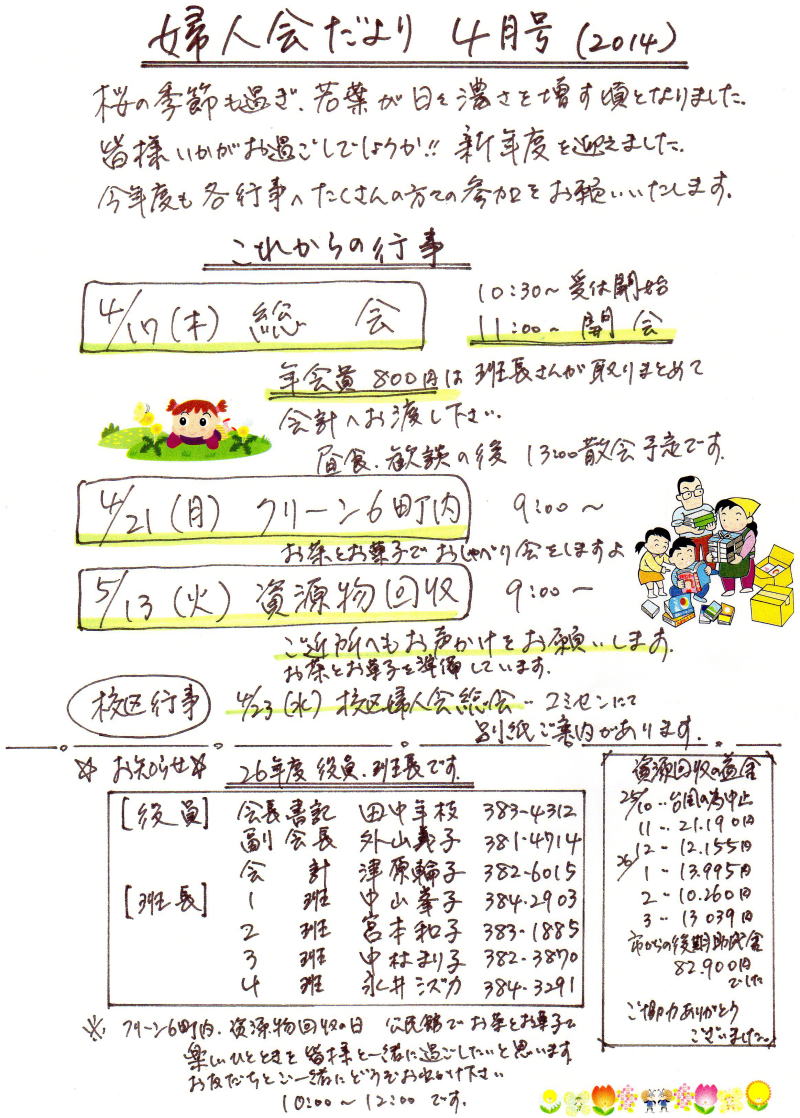 婦人会だより 4月号 (2014)
桜の季節も過ぎ、若葉が日々濃さを増す頃となりました。
皆様いかがお過ごしでしょうか!! 新年度を迎えました。
今年度も各行事へたくさんの方での参加をお願いいたします。
これからの行事
4/17(木) 総 会
10:30~ 受付開始
11:00~ 開会
年会費 800円は 班長さんが取りまとめて
会計へお渡し下さい。
昼食、歓談の後 13:00散会予定です。
4/21(月) クリーン6町内 9:00~
お茶とお菓子で おしゃべり会をしますよ
5/13(火) 資源物回収 9:00~
ご近所へもお声かけをお願いします。
お茶とお菓子を準備しています。
校区行事 4/23(水) 校区婦人会総会… コミセンにて
別紙ご案内があります。
☆ お知らせ☆ 26年度 役員、班長です。
[役員] 会長書記 田中年枝 383-4312
副会長 外山義子 381-4714
会計 津原輪子 382-6015
[班長] 1 班 中山峯子 384-2903
2 班 宮本和子 383-1885
3 班 中村まり子 382-3870
4 班 永井シズカ 384-3291
資源回収の益金
25/10… 台風の為中止
11… 21.190円
12… 12.155円
26/1… 13.995円
2… 10.260円
3… 13039円
市からの後期助成金
82.900円
でした
ご協力ありがとう
ございました。
※ クリーン6町内、資源物回収の日 公民館でお茶とお菓子で
楽しいひとときを皆様と一緒に過ごしたいと思います
お友だちとご一緒にどうぞお出かけ下さい
10:00~12:00 です。